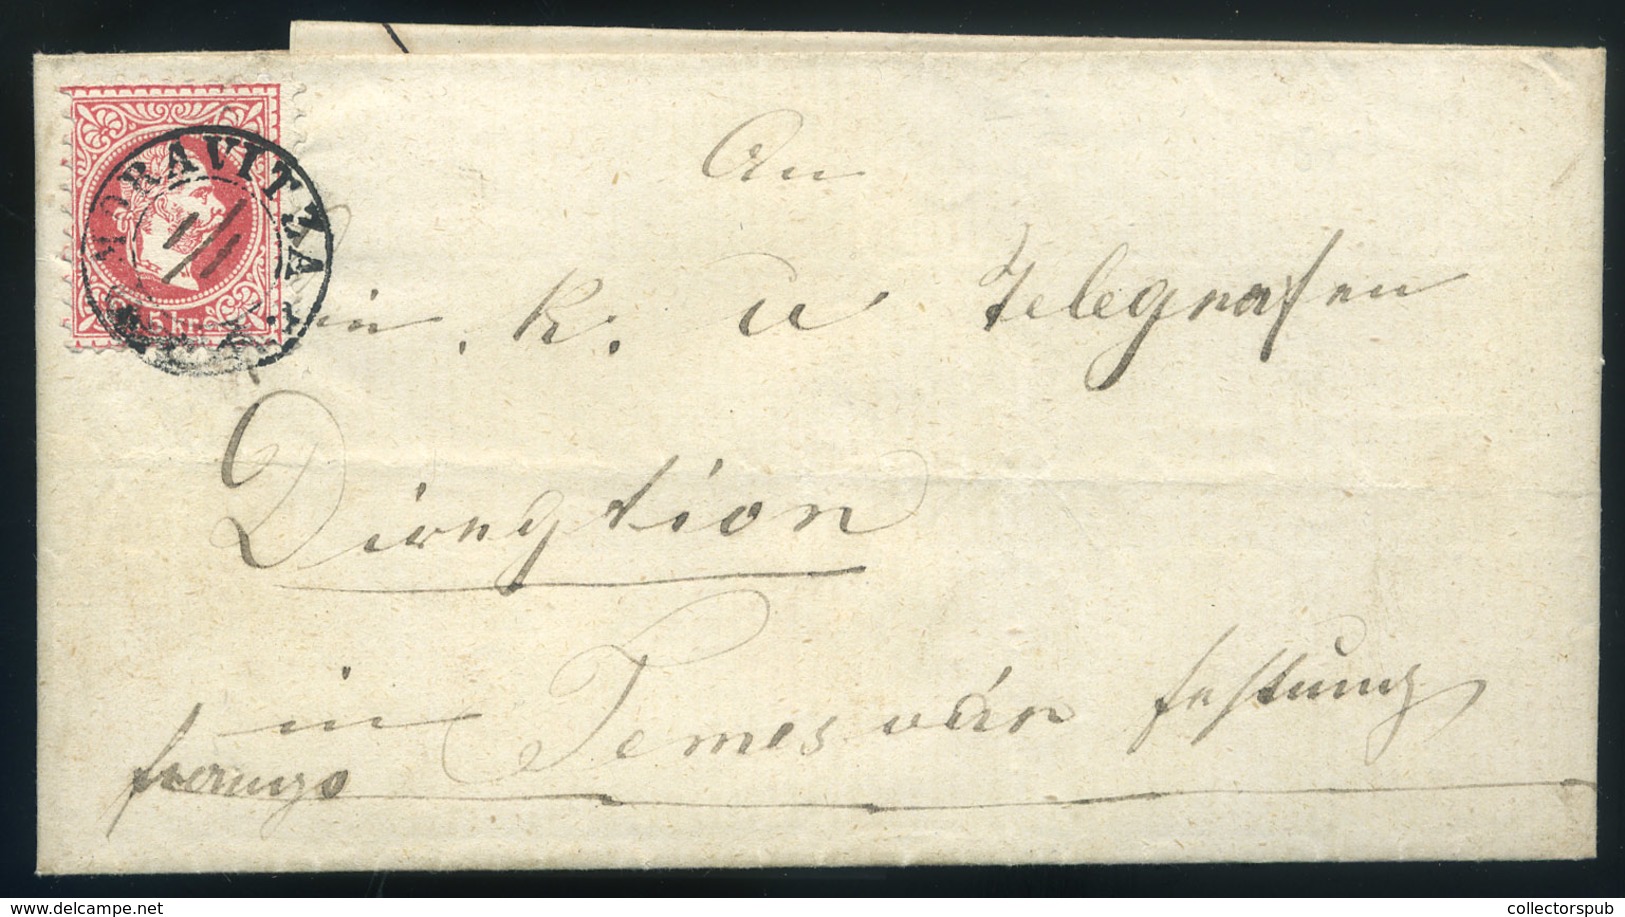 MORAVITZA
5 kr
An
k. u Telegrafen
Diregtion
in Temesvár festung
www.delcampe.net
collectorspub